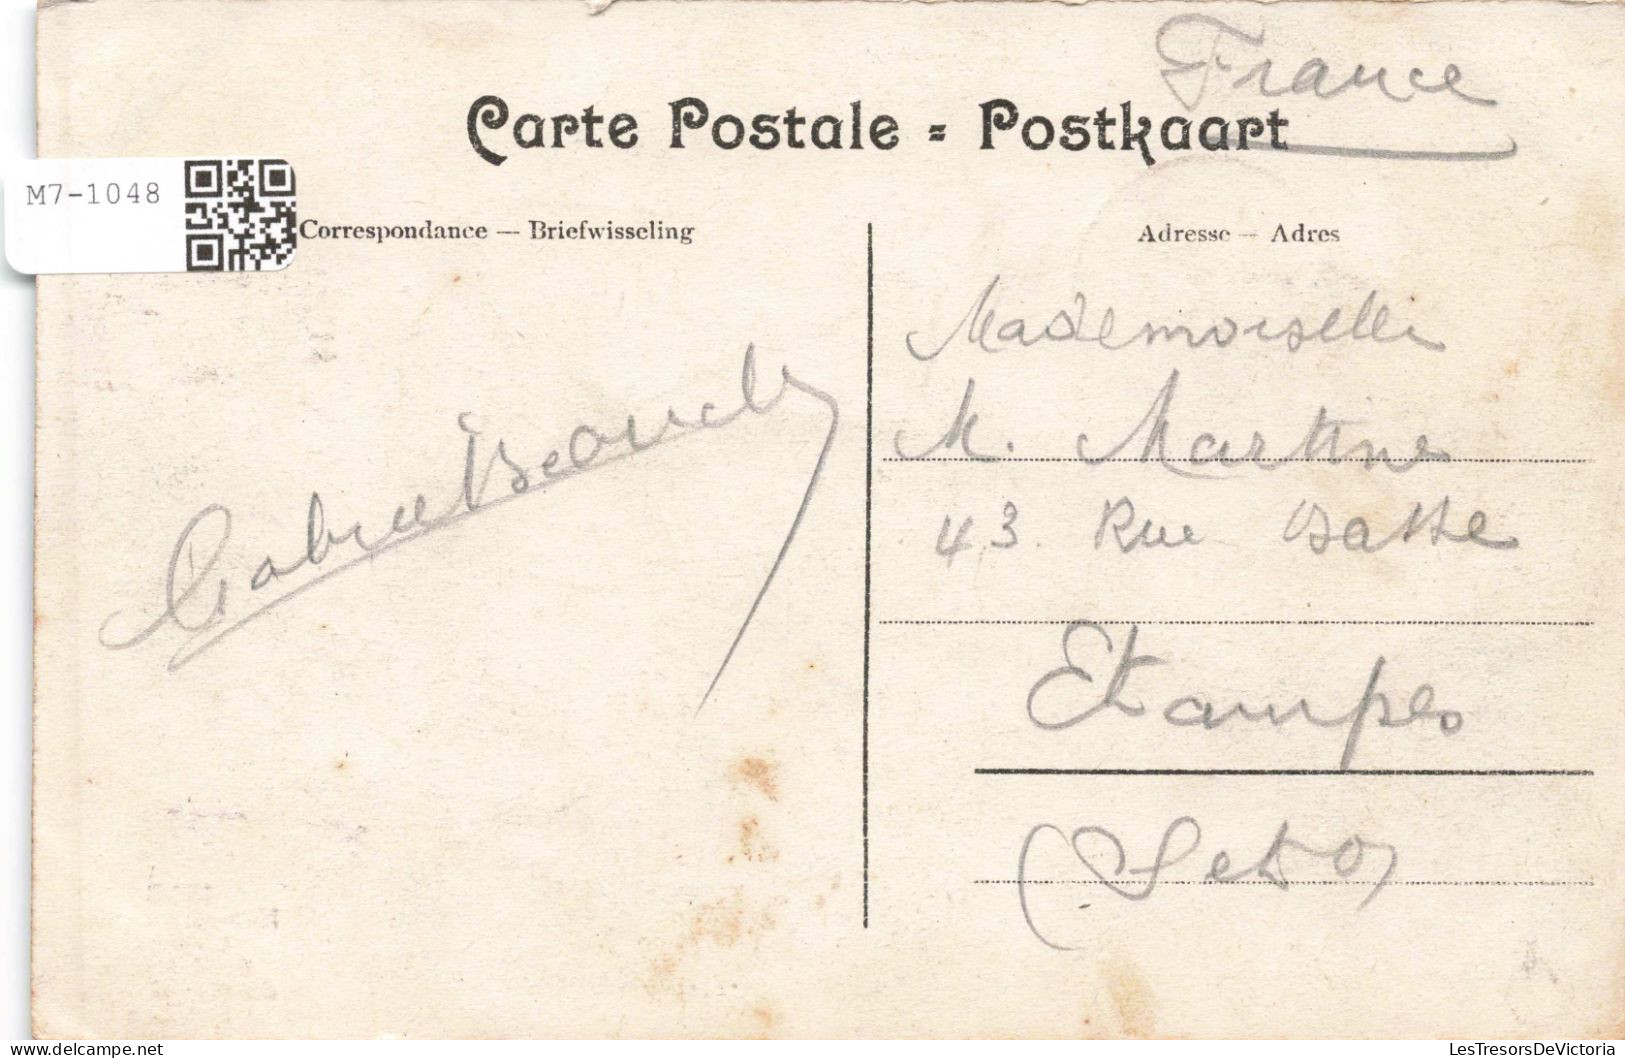 France
Carte Postale = Postkaart
M7-1048
Correspondance — Briefwisseling
Adresse — Adres
Mademoiselle
M. Martine
43 Rue Basse
Etampes
(S et O)
Gabriel
LesTresorsDeVictoria
www.delcampe.net